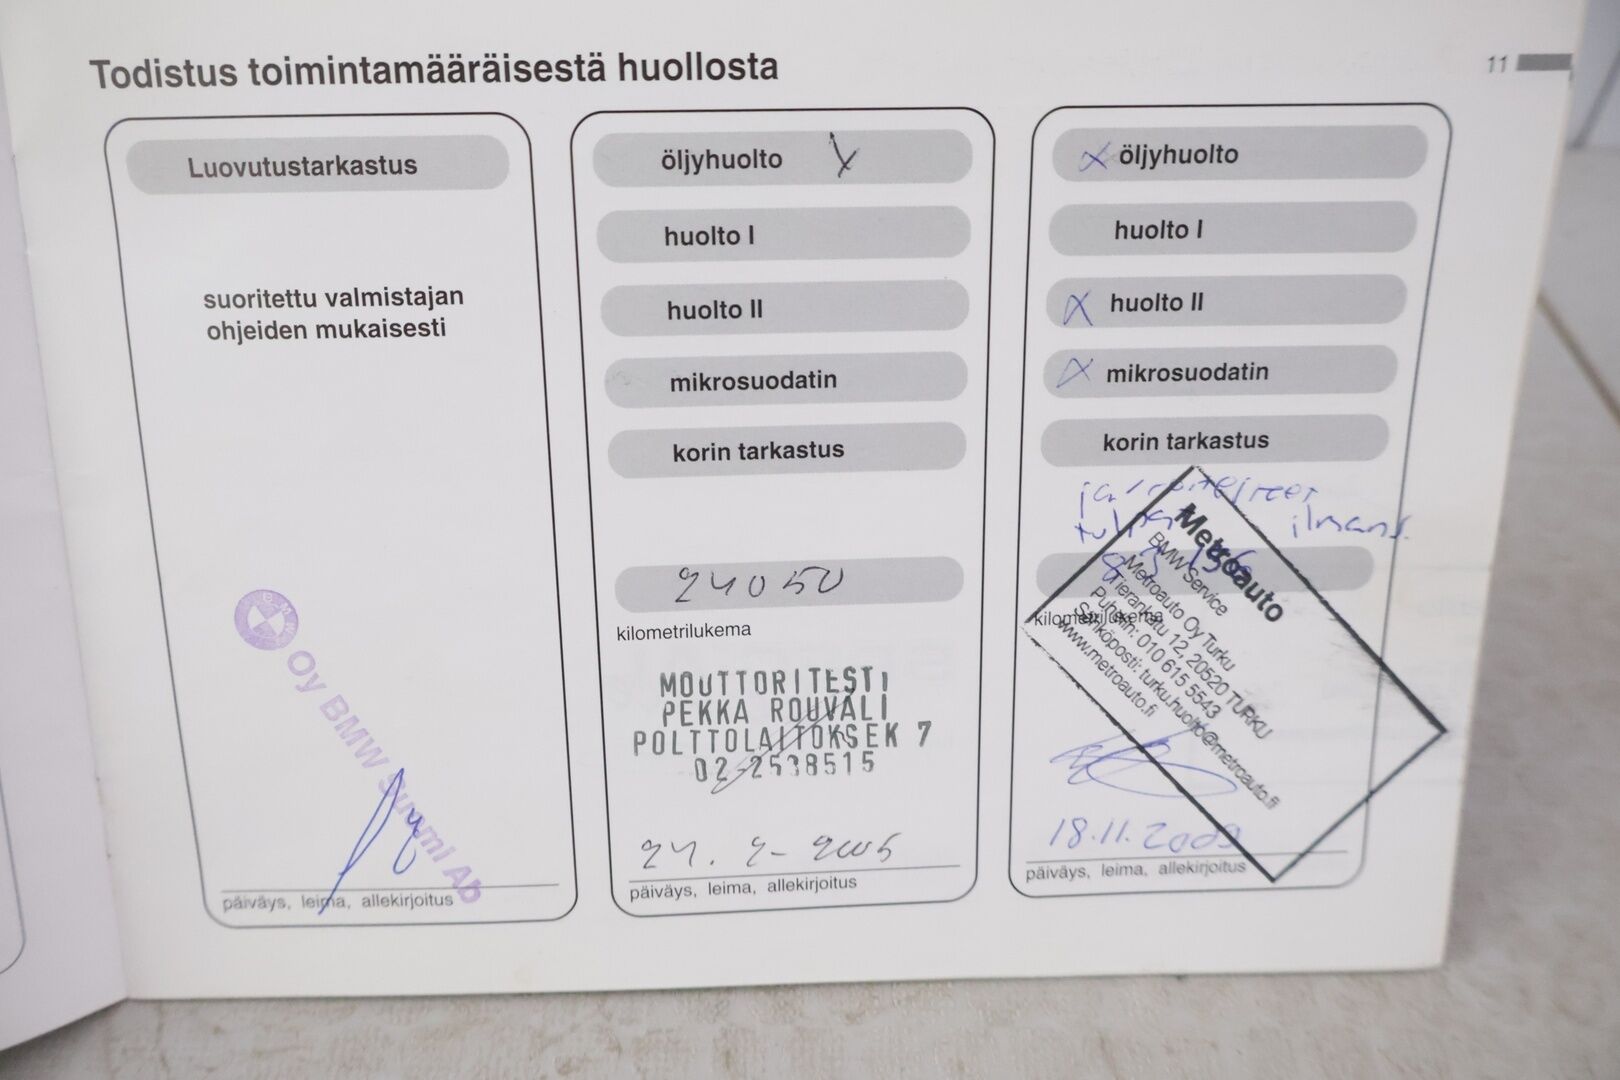 Todistus toimintamääräisestä huollosta
11
Luovutustarkastus
suoritettu valmistajan
ohjeiden mukaisesti
BMW
Oy BMW Suomi Ab
päiväys, leima, allekirjoitus
öljyhuolto X
huolto I
huolto II
mikrosuodatin
korin tarkastus
24050
kilometrilukema
MOUTTORITESTI
PEKKA ROUVALI
POLTTOLAITOKSEK 7
02-2538515
päiväys, leima, allekirjoitus
X öljyhuolto
huolto I
X huolto II
X mikrosuodatin
korin tarkastus
ilmans.
kilometrilukema
Metroauto
BMW Service
Metroauto Oy Turku
Tierankatu 12, 20520 TURKU
Puhelin: 010 615 5543
Sähköposti: turku.huolto@metroauto.fi
www.metroauto.fi
18.11.2009
päiväys, leima, allekirjoitus